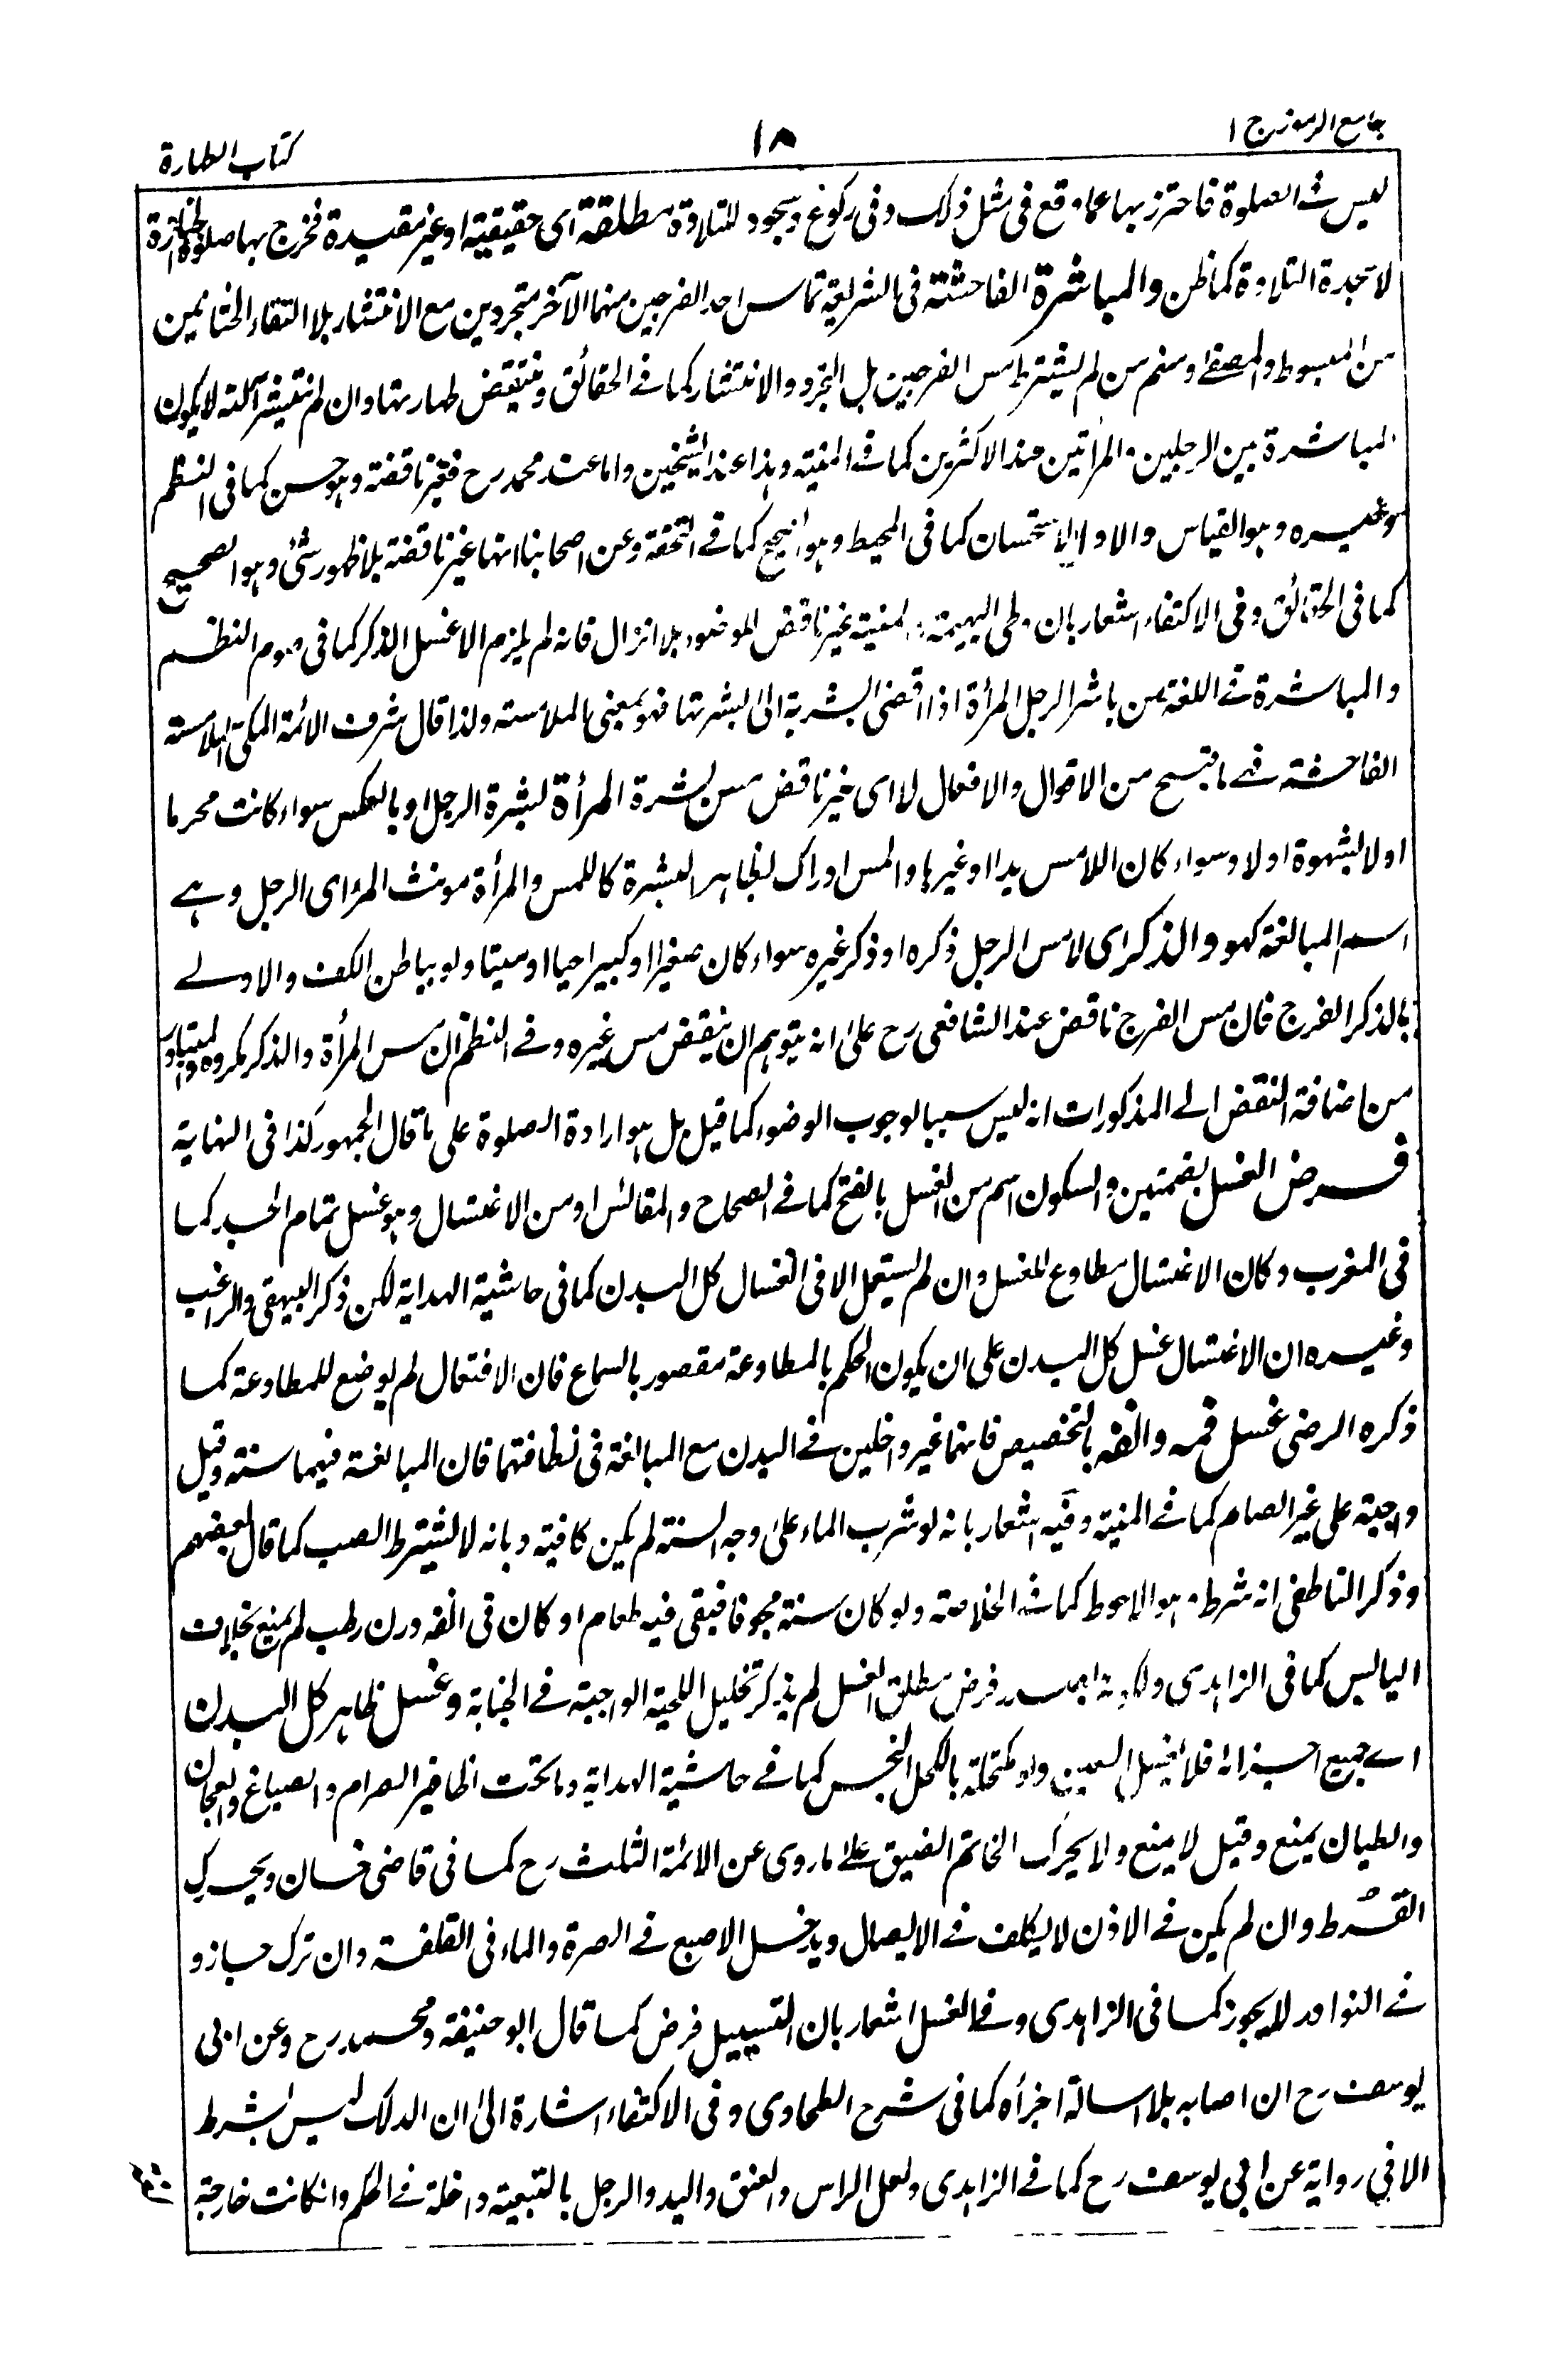 جامع الرموز ج ١
١٨
كتاب الطهارة
ليس فى الصلوة فاحترز بها عما وقع فى مثل ذلك وفى ركوع وسجود للتلاوة مطلقة اى حقيقية او غير مقيدة فخرج بها صلوة الجنازة
لا سجدة التلاوة كما ظن والمباشرة الفاحشة فى الشريعة تماس احد الفرجين منهما الآخر متجردين مع الانتشار بلا التقاء الختانين
من المبسوط والمصفى ومنهم من لم يشترط مس الفرجين بل التجرد والانتشار كما فى الحقائق وينتقض طهارتها وان لم ينتشر آلته لا يكون
المباشرة بين الرجلين والمرأتين عند الاكثرين كما فى المنية وهذا عند الشيخين واما عند محمد رح فغير ناقضة وهو حسن كما فى النظم
وغيره وهو القياس والاول الاستحسان كما فى المحيط وهو الصحيح كما فى التحفة وعن اصحابنا انها غير ناقضة بلا ظهور شئ وهو الصحيح
كما فى الحقائق وفى الاكتفاء اشعار بان وطى البهيمة غير ناقض للوضوء بلا انزال فانه لم يلزم الا غسل الذكر كما فى صوم النظم
والمباشرة فى اللغة من باشر الرجل المرأة اذا افضى البشرية الى بشرتها فهو بمعنى الملامسة ولذا قال شرف الائمة المكى الملامسة
الفاحشة هى ما قبح من الاقوال والافعال لا اى غير ناقض مس بشرة المرأة لبشرة الرجل او بالعكس سواء كانت محرما
او لا لشهوة او لا وسواء كان اللامس يدا او غيرها والمس ادراك لظاهر البشرة كاللمس والمرأة مونث المرؤ اى الرجل وهى
اسم المبالغة كهو والذكر اى لا مس الرجل ذكره او ذكر غيره سواء كان صغيرا او كبيرا حيا او ميتا ولو بباطن الكف والاولى
بالذكر الفرج فان مس الفرج ناقض عند الشافعى رح على انه يتوهم ان ينقض مس غيره وفى النظم ان مس المرأة والذكر مكروه والمتبادر
من اضافة النقض الى المذكورات انه ليس سببا لوجوب الوضوء كما قيل بل هو ارادة الصلوة على ما قال الجمهور كذا فى النهاية
فرض الغسل بضمتين والسكون اسم من الغسل بالفتح كما فى الصحاح والمقائس او من الاغتسال وهو غسل تمام الجسد كما
فى المغرب وكان الاغتسال مطاوع الغسل وان لم يستعمل الا فى اغتسال كل البدن كما فى حاشية الهداية لكن ذكر البيهقى والراغب
وغيره ان الاغتسال غسل كل البدن على ان يكون الحكم بالمطاوعة مقصور بالسماع فان الافتعال لم يوضع للمطاوعة كما
ذكره الرضى غسل فمه وانفه بالتخصيص فانهما غير داخلين فى البدن مع المبالغة فى نظافتهما فان المبالغة فيهما سنة وقيل
واجبة على غير الصائم كما فى المنية وفيه اشعار بانه لو شرب الماء على وجه السنة لم يكن كافية وبانه لا يشترط الصب كما قال بعضهم
وذكر الناطفى انه شرط وهو الاحوط كما فى الخلاصة ولو كان سنه مجوفا فبقى فيه طعام او كان فى انفه درن رطب لم يمنع بخلاف
اليابس كما فى الزاهدى فرض مطلق الغسل لم يذكر تخليل اللحية الواجبة فى الجنابة وغسل ظاهر كل البدن
اى جميع اجزائه فلا يغسل العين ولو مكتحلة بالكحل النجس كما فى حاشية الهداية وما تحت اظافير الصرام والصباغ والعجان
والطيان يمنع وقيل لا يمنع ولا يحرك الخاتم الضيق على ما روى عن الائمة الثلث رح كما فى قاضى خان ويحرك
القرط وان لم يكن فى الاذن لا يكلف فى الايصال ويدخل الاصبع فى الصرة والماء فى القلفة وان ترك جاز و
فى النوادر لا يجوز كما فى الزاهدى وفى الغسل اشعار بان التسييل فرض كما قال ابو حنيفة ومحمد رح وعن ابى
يوسف رح ان اصابه بلا اسالة اجزأه كما فى شرح الطحاوى وفى الاكتفاء اشارة الى ان الدلك ليس بشرط
الا فى رواية عن ابى يوسف رح كما فى الزاهدى ولعل الراس والعنق واليد والرجل بالتبعية داخلة فى الحكم وان كانت خارجة